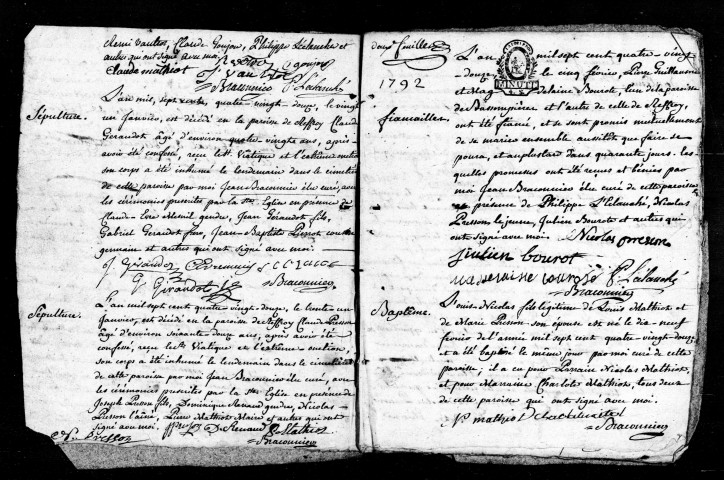 Remi Vautrot, Claude Goujon, Philippe L'élanché et
autres qui ont signé avec moi
Claude mathiot
Braconnier P. Lélanché
Sépulture.
L'an mil, sept cents, quatre-vingt-douze, le vingt
un janvier, est décédé en la paroisse de Reffroy Claude
Gerardot âgé d'environ quatre vingts ans, après
avoir été confessé, reçu le st. Viatique et l'extrême onction
son corps a été inhumé le lendemain dans le cimetière
de cette paroisse par moi Jean Braconnier élu curé, avec
les cérémonies prescrites par la ste. Eglise en présence de
Claude gendre, Jean Géraudot fils,
Gabriel Géraudot frere, Jean-Baptiste cousin
germain et autres qui ont signé avec moi.
J Girardot
G Girardot Braconnier
Sépulture.
L'an mil sept cent quatre-vingt-douze, le trente-un
janvier, est décédé en la paroisse de Reffroy Claude Presson
âgé d'environ soixante-douze ans, après avoir été
confessé, reçu le st. Viatique et l'extrême onction,
son corps a été inhumé le lendemain dans le cimetière
de cette paroisse par moi Jean Braconnier élu curé, avec
les cérémonies prescrites par la ste. Eglise en présence de
Joseph Presson fils, Dominique Renaud gendre, Nicolas
Presson l'aîné, Pierre Mathiot Maire et autres qui ont
signé avec moi. D. Renaud P. Mathiot
Presson Braconnier
deux. feuillet
1792
fiançailles.
L'an mil sept cent quatre-vingt
douze, le cinq février, Pierre Guillaume
et Magdelaine Bourot, l'un de la paroisse
de et l'autre de celle de Reffroy,
ont été fiancé, et se sont promis mutuellement
de se marier ensemble aussitôt que faire se
poura, et au plus tard dans quarante jours. les-
quelles promesses ont été reçues et bénies par
moi Jean Braconnier élu curé de cette paroisse
en présence de Philippe L'Elanché, Nicolas
Presson le jeune, Julien Bourot et autres qui
ont signé avec moi. Nicolas presson
Julien bourot
P. Lélanché
Braconnier
Baptême.
Louis-Nicolas fils légitime de Louis Mathiot et
de Marie Presson son épouse est né le dix-neuf
février de l'année mil sept cent quatre-vingt-douze
et a été baptisé le même jour par moi curé de cette
paroisse; il a eu pour Parrain Nicolas Mathiot,
et pour Marraine Charlote Mathiot, tous deux
de cette paroisse qui ont signé avec moi.
N. mathiot
Braconnier